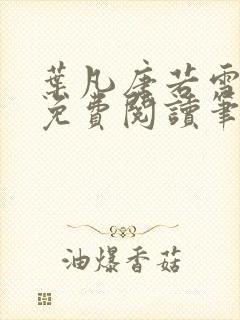 葉凡唐若雪
免費閱讀筆
油爆香菇